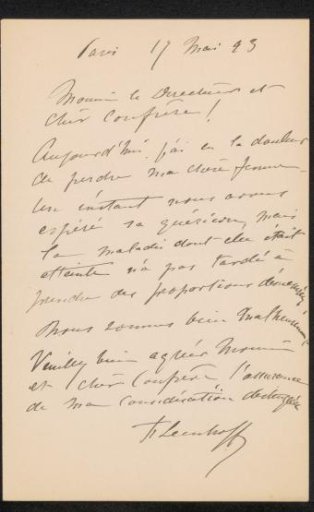 Paris 17 Mai 93
Monsieur le Directeur et
cher Confrère!
Aujourd'hui j'ai eu la douleur
de perdre ma chère femme
Un instant nous avons
espéré sa guérison, mais
la maladie dont elle était
atteinte n'a pas tardé à
prendre des proportions
Nous sommes bien malheureux!
Veuillez bien agréer Monsieur
et cher Confrère l'assurance
de ma considération distinguée
Leenhoff